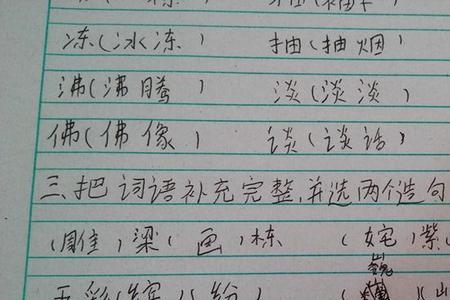 冻(冰冻) 抽(抽烟)
沸(沸腾) 淡(淡淡)
佛(佛像) 谈(谈话)
三.把词语补充完整,并选两个造句
(雕)梁(画)栋 (姹)紫
五彩(缤)(纷)